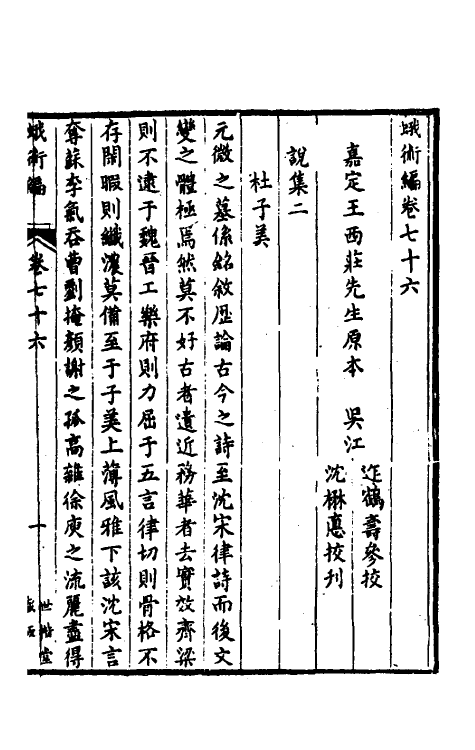 蛾術編卷七十六
嘉定王西莊先生原本　吳江
迮鶴壽參校
沈楙悳挍刊
說集二
杜子美
元微之墓係銘敘歷論古今之詩至沈宋律詩而後文
變之體極焉然莫不好古者遺近務華者去實效齊梁
則不逮于魏晉工樂府則力屈于五言律切則骨格不
存閑暇則纖濃莫備至于子美上薄風雅下該沈宋言
奪蘇李氣吞曹劉掩顏謝之孤高雜徐庾之流麗盡得
蛾術編
卷七十六
一
世楷堂
藏板